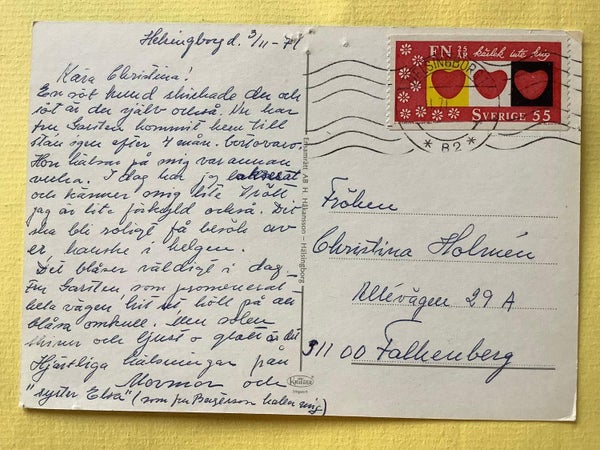 Helsingborg d. 3/11 - 71
Kära Christina!
En söt hund skickade du och
söt är du själv också. Nu har
fru Garsten kommit hem till
stan igen efter 4 mån. bortovaro.
Hon hälsar på mig varannan
vecka. I dag har jag
och känner mig lite trött.
jag är lite förkyld också. Det
ska bli roligt få besök av
er kanske i helgen.
Det blåser väldigt i dag -
Fru Garsten som promenerat
hela vägen hit höll på att
blåsa omkull. Men solen
skiner och ljust o glatt är det
Hjärtliga hälsningar från
Mormor och
"syster Elsa" (som fru Bengtsson kallar mig)
FN 25 ÅR kärlek inte krig
SVERIGE 55
* 82 *
AB H. Håkanson - Hälsingborg
Krüger
Import
Fröken
Christina Holmén
Allévägen 29 A
311 00 Falkenberg